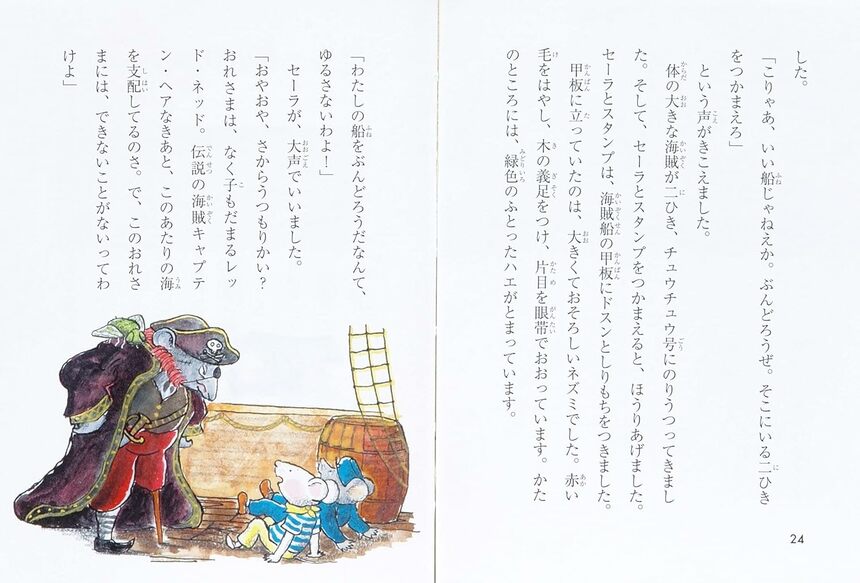 した。
「こりゃあ、いい船じゃねえか。ぶんどろうぜ。そこにいる二ひき
をつかまえろ」
という声がきこえました。
体の大きな海賊が二ひき、チュウチュウ号にのりうつってきまし
た。そして、セーラとスタンプをつかまえると、ほうりあげました。
セーラとスタンプは、海賊船の甲板にドスンとしりもちをつきました。
甲板に立っていたのは、大きくておそろしいネズミでした。赤い
毛をはやし、木の義足をつけ、片目を眼帯でおおっています。かた
のところには、緑色のふとったハエがとまっています。
24
「わたしの船をぶんどろうだなんて、
ゆるさないわよ！」
セーラが、大声でいいました。
「おやおや、さからうつもりかい？
おれさまは、なく子もだまるレッ
ド・ネッド。伝説の海賊キャプテ
ン・ヘアなきあと、このあたりの海
を支配してるのさ。で、このおれさ
まには、できないことがないってわ
けよ」